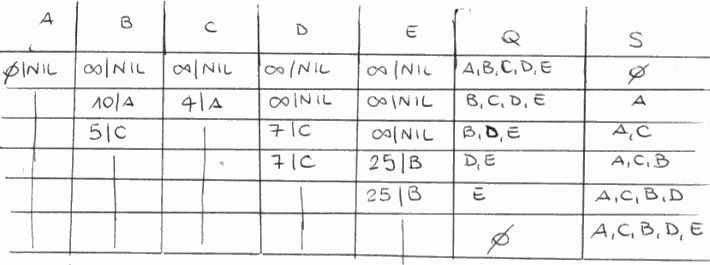 A B C D E Q S
Ø|NIL ∞|NIL ∞|NIL ∞|NIL ∞|NIL A,B,C,D,E Ø
10|A 4|A ∞|NIL ∞|NIL B,C,D,E A
5|C 7|C ∞|NIL B,D,E A,C
7|C 25|B D,E A,C,B
25|B E A,C,B,D
Ø A,C,B,D,E